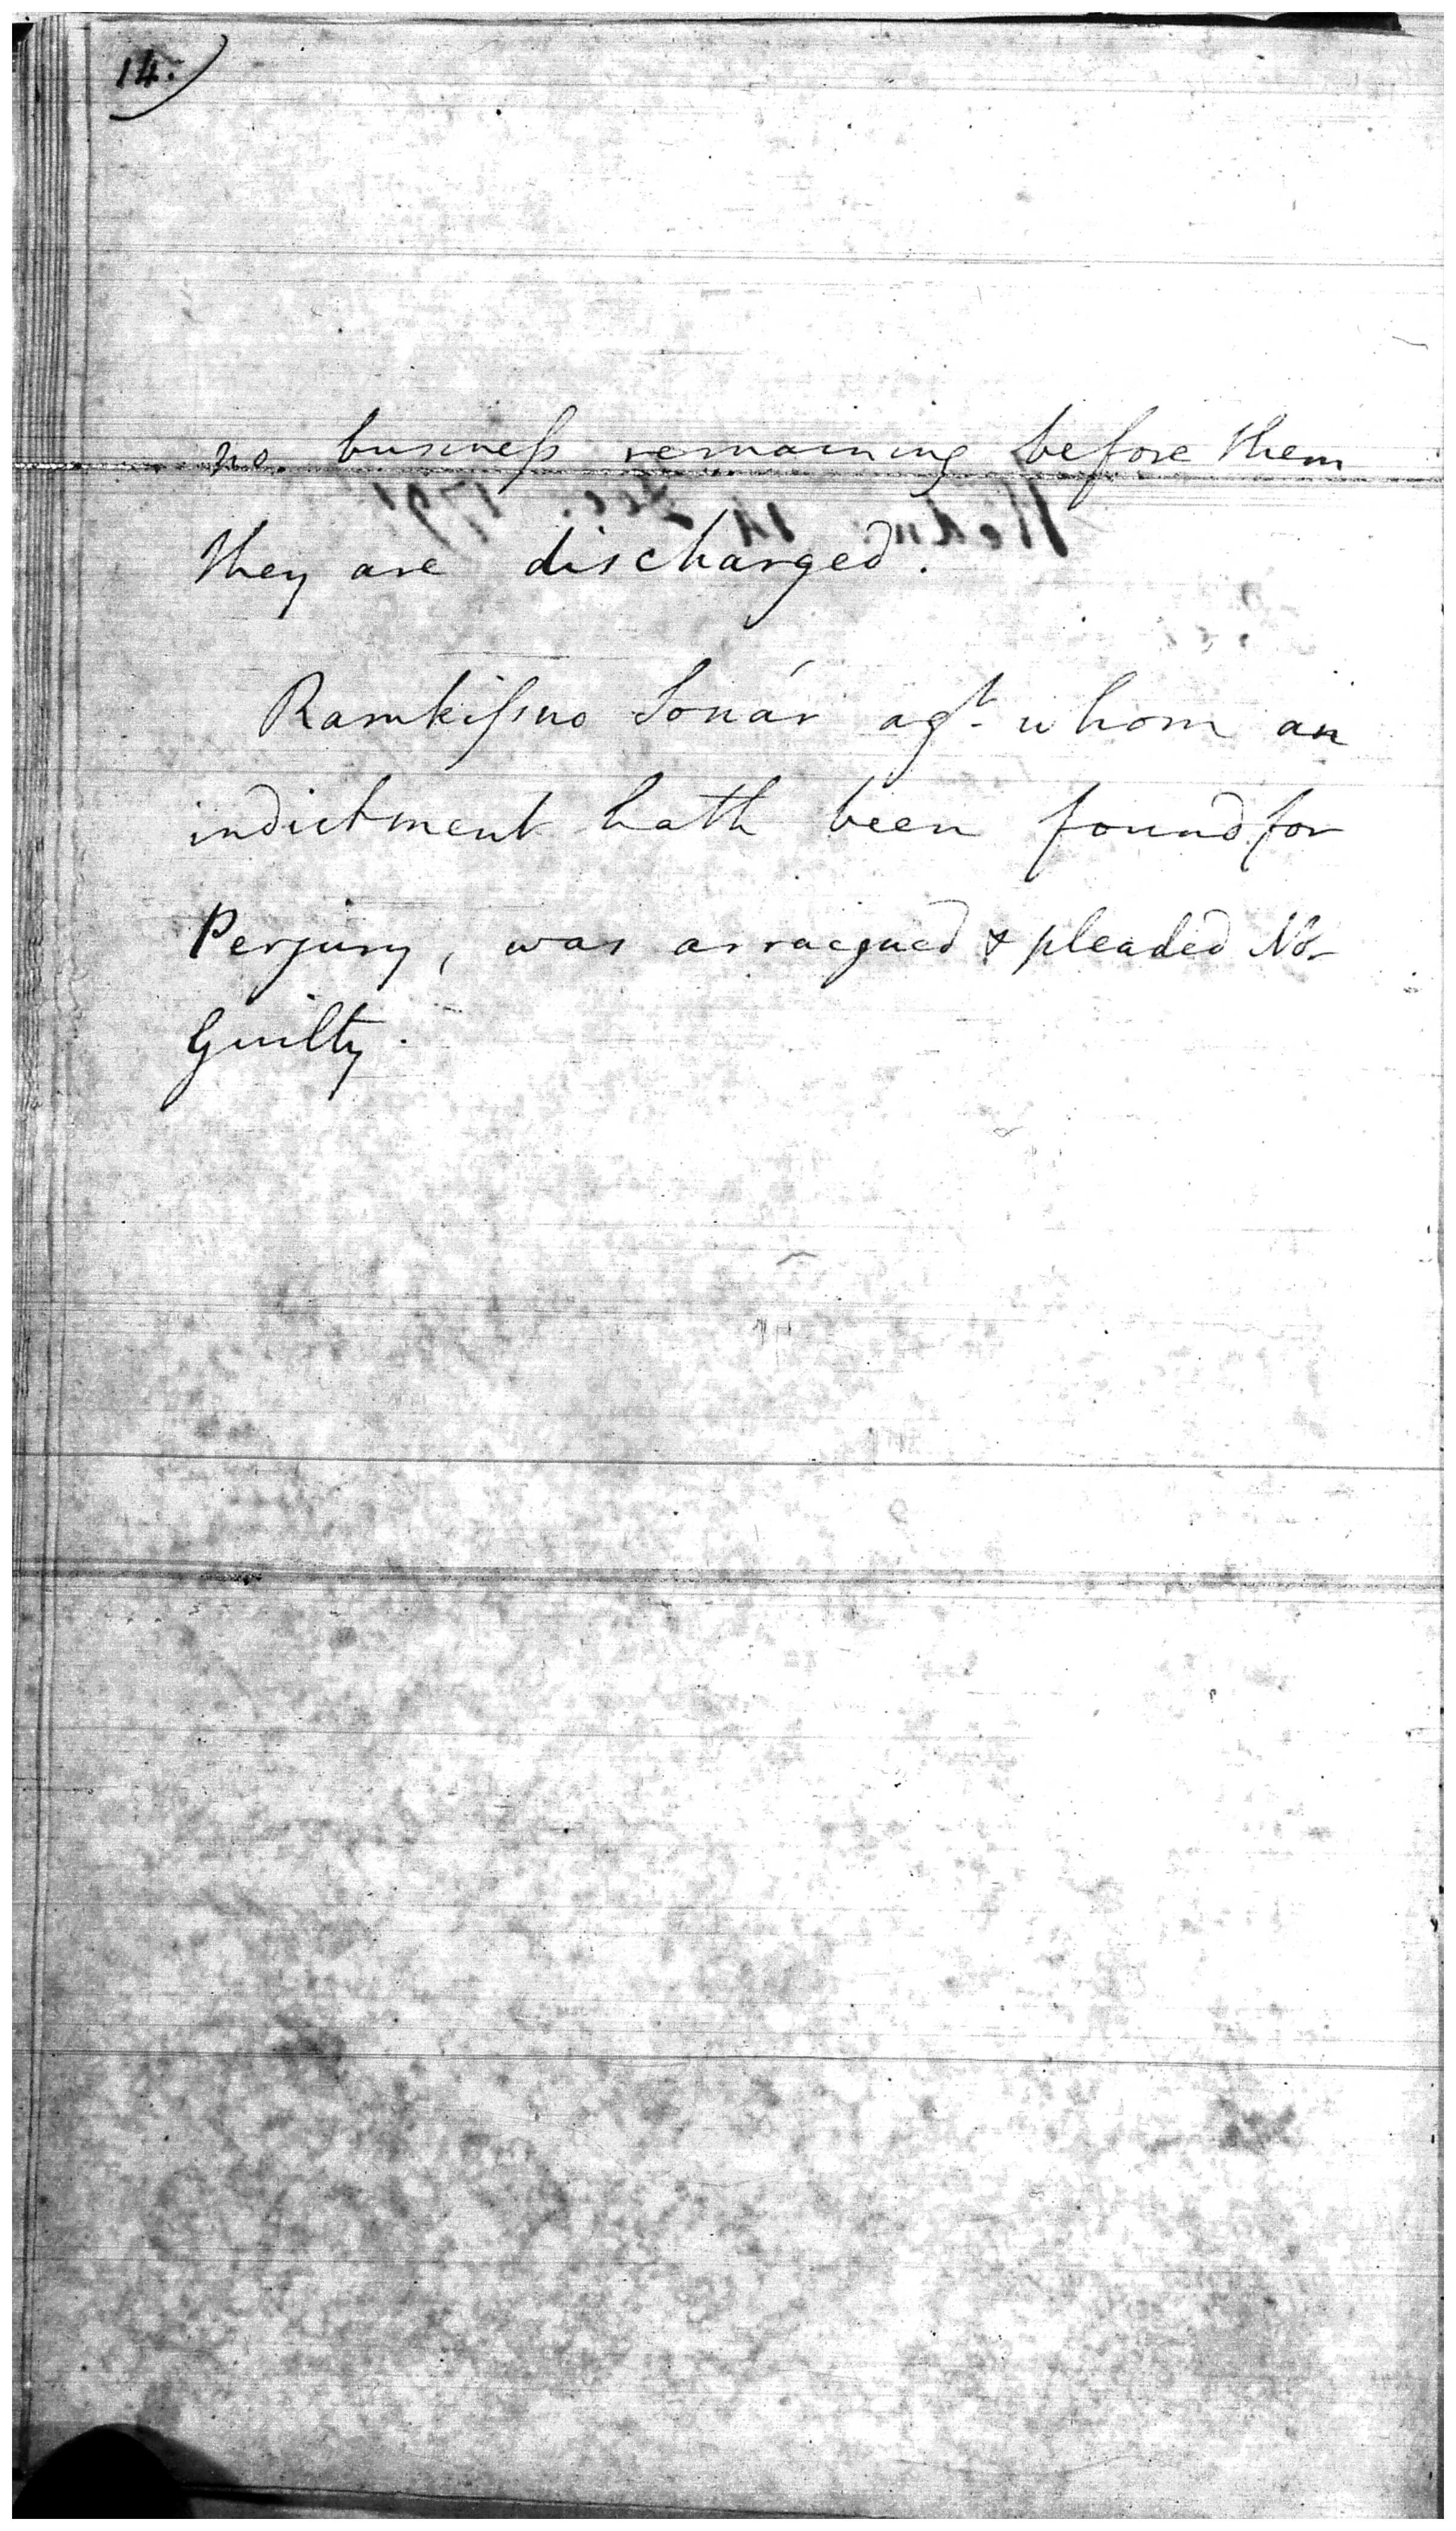 14.
no business remaining before them
they are discharged.
Ramkissno Sonár agt. whom an
indictment hath been found for
Perjury, was arraigned & pleaded Not
Guilty.